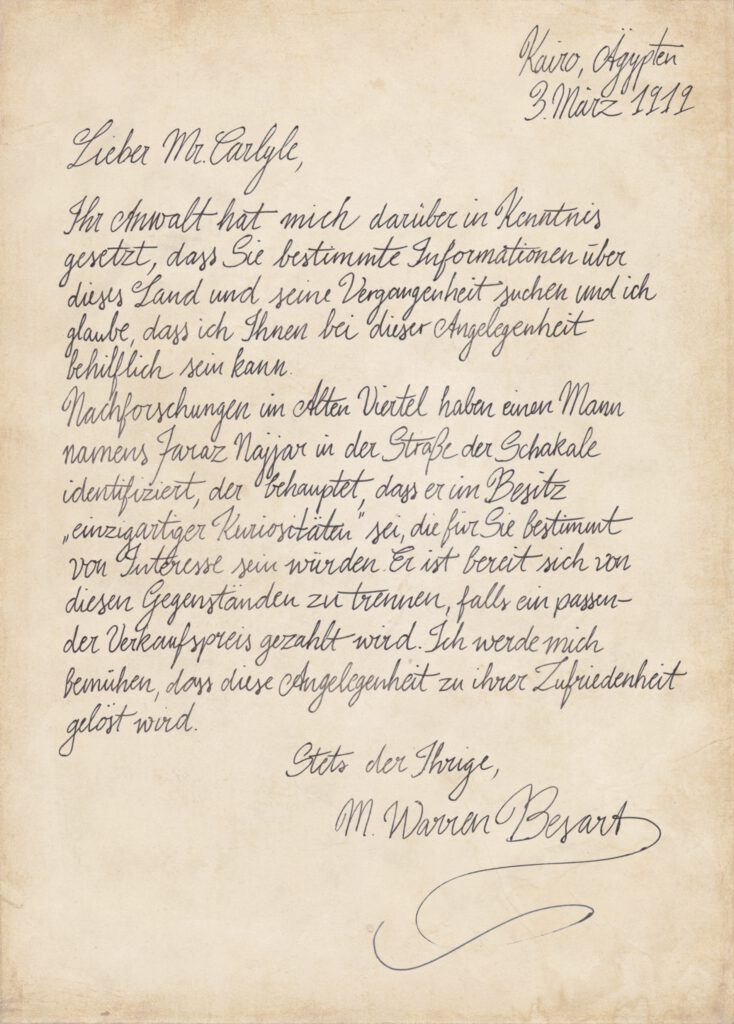 Kairo, Ägypten
3. März 1919
Lieber Mr. Carlyle,
Ihr Anwalt hat mich darüber in Kenntnis
gesetzt, dass Sie bestimmte Informationen über
dieses Land und seine Vergangenheit suchen und ich
glaube, dass ich Ihnen bei dieser Angelegenheit
behilflich sein kann.
Nachforschungen im Alten Viertel haben einen Mann
namens Faraz Najjar in der Straße der Schakale
identifiziert, der behauptet, dass er im Besitz
„einzigartiger Kuriositäten“ sei, die für Sie bestimmt
von Interesse sein würden. Er ist bereit sich von
diesen Gegenständen zu trennen, falls ein passen-
der Verkaufspreis gezahlt wird. Ich werde mich
bemühen, dass diese Angelegenheit zu ihrer Zufriedenheit
gelöst wird.
Stets der Ihrige,
M. Warren Besart